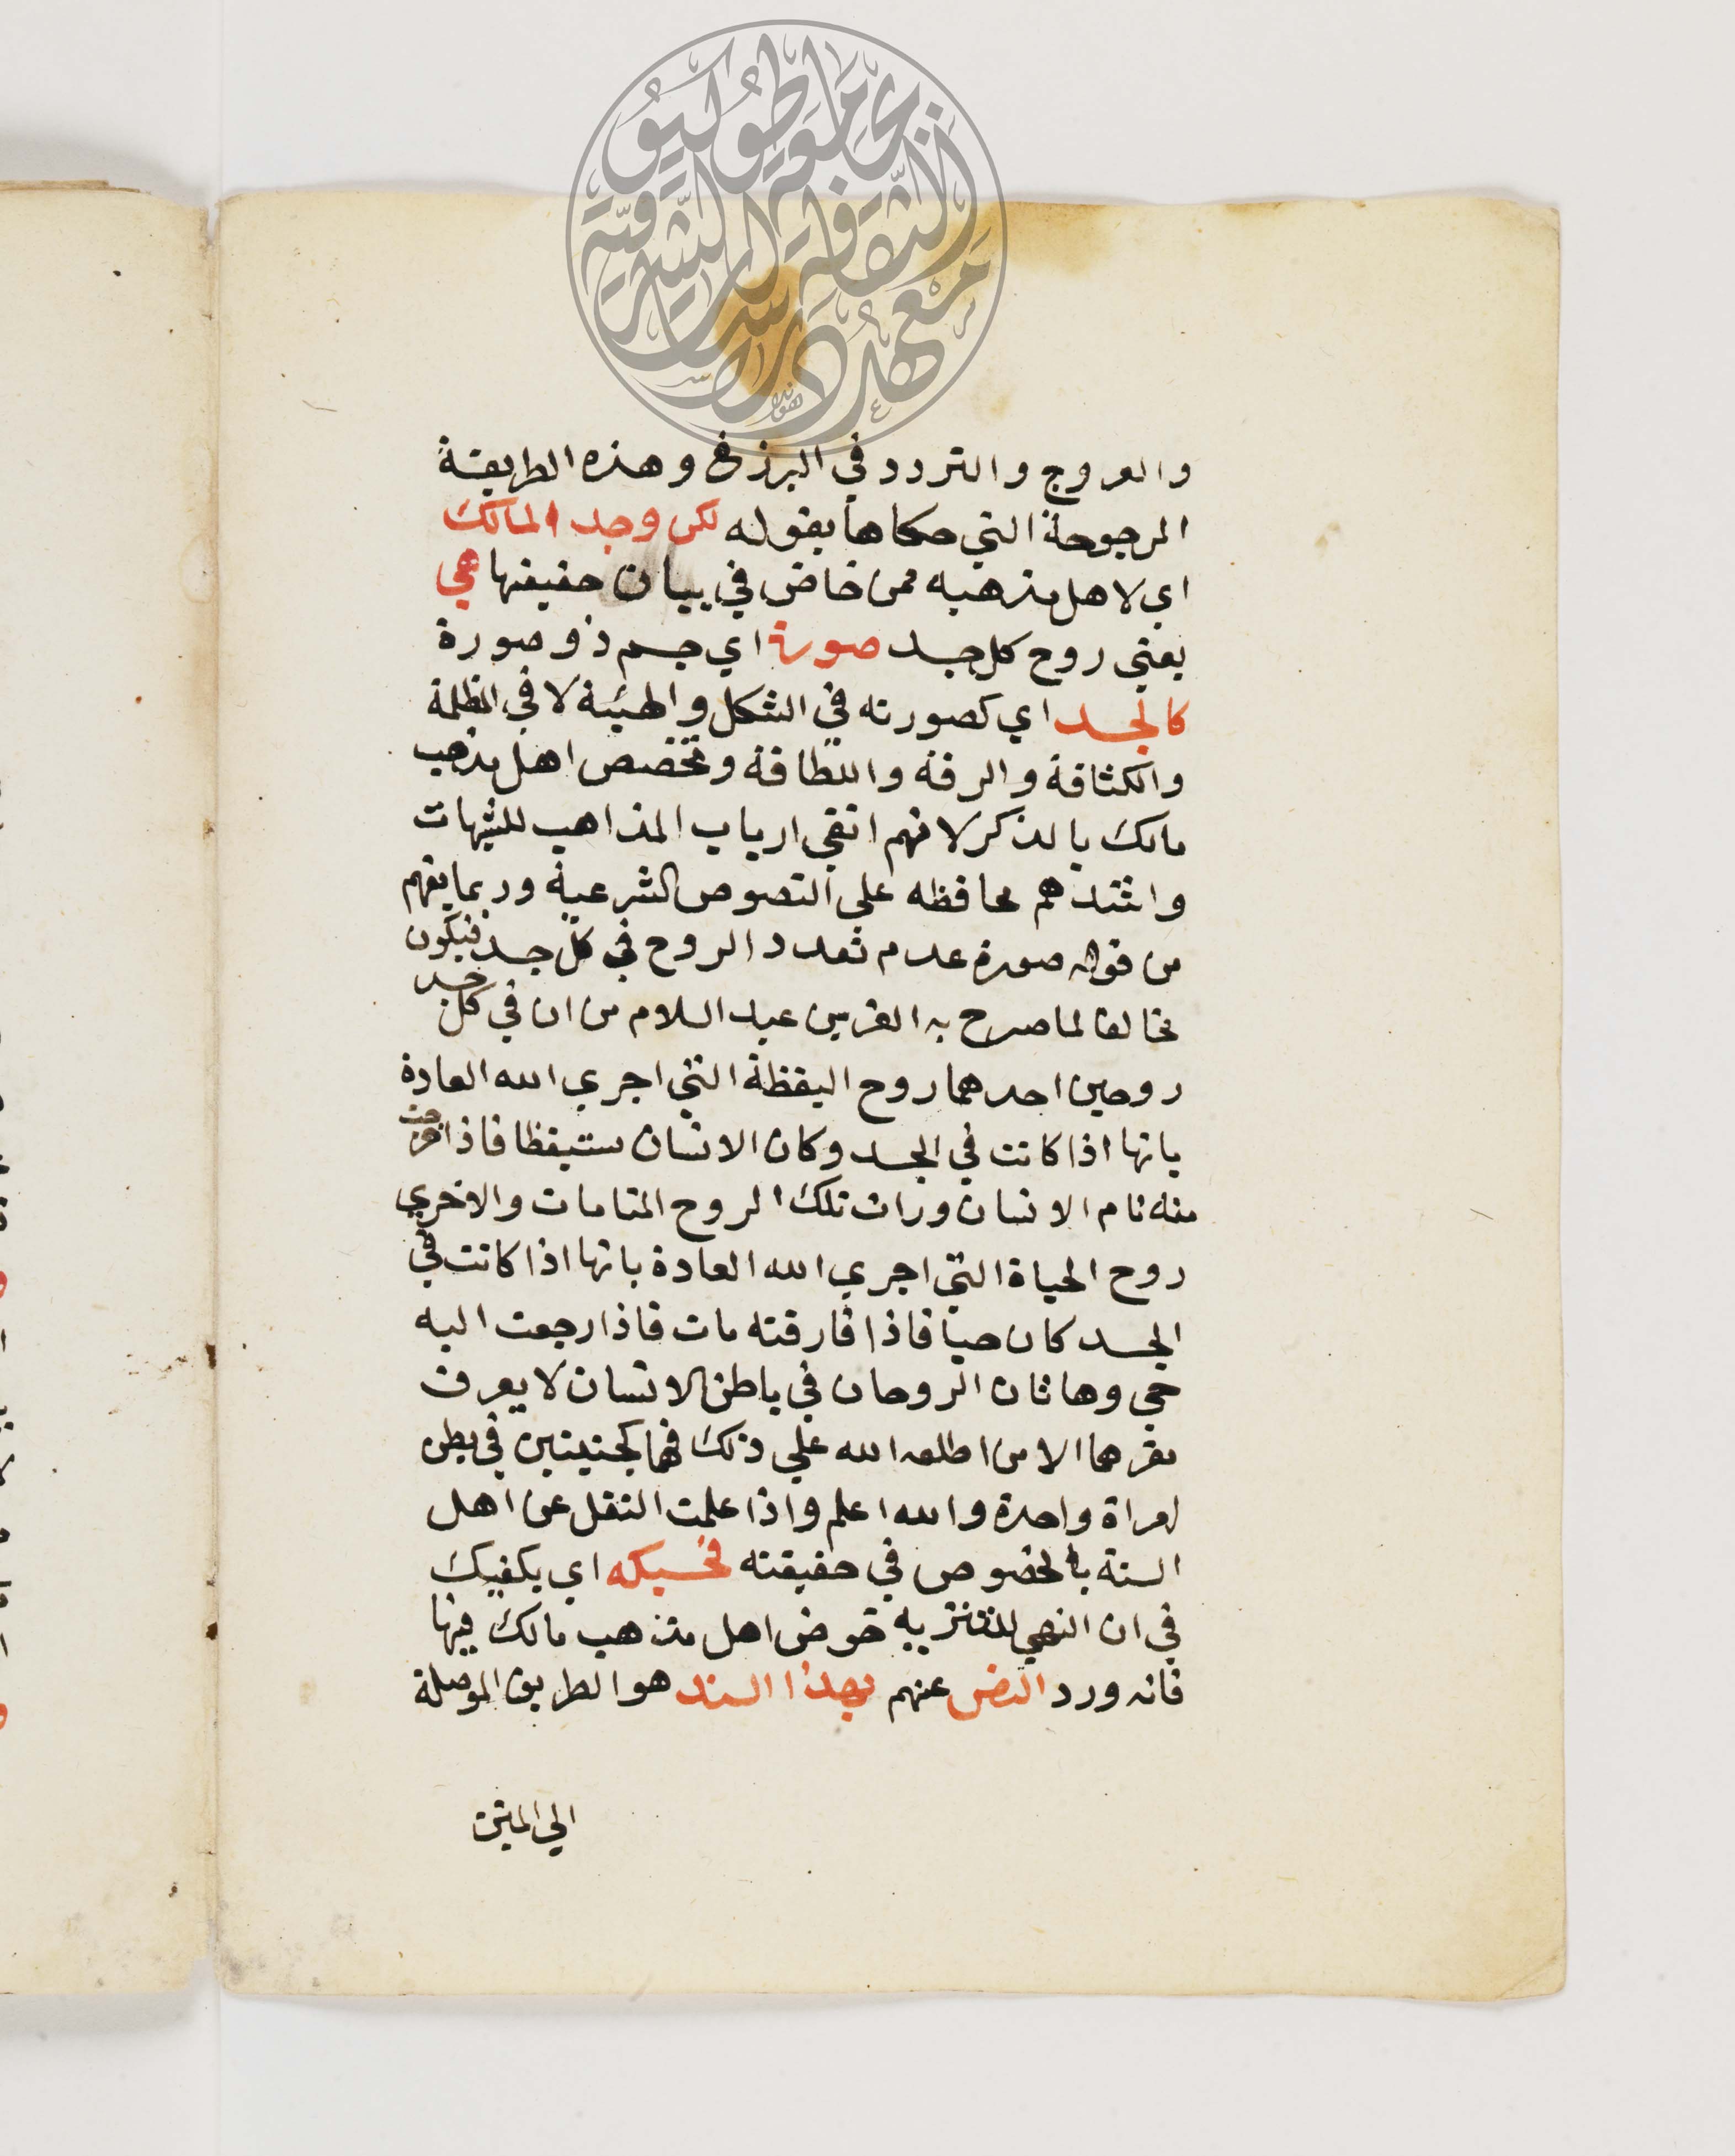 والعروج والتردد في البرزخ وهذه الطريقة
المرجوحة التي حكاها بقوله لكن وجد المالك
اي لاهل مذهبه ممن خاض في بيان حقيقتها هي
يعني روح كل جسد صورة اي جسم ذو صورة
كالجسد اي كصورته في الشكل والهيئة لا في الظلمة
والكثافة والرقة واللطافة وتخصص اهل مذهب
مالك بالذكر لانهم اتقى ارباب المذاهب للشبهات
واشدهم محافظه علي النصوص الشرعية وربما يفهم
من قوله صورة عدم تعدد الروح في كل جسد فيكون
مخالفا لما صرح به العز بن عبد السلام من ان في كل جسد
روحين احدهما روح اليقظة التي اجري الله العادة
بانها اذا كانت في الجسد وكان الانسان مستيقظا فاذا خرجت
منه نام الانسان ورات تلك الروح المنامات والاخري
روح الحياة التي اجري الله العادة بانها اذا كانت في
الجسد كان حيا فاذا فارقته مات فاذا رجعت اليه
حي وهاتان الروحان في باطن الانسان لا يعرف
مقرهما الا من اطلعه الله علي ذلك فهما كجنينين في بطن
امراة واحدة والله اعلم واذا علمت النقل عن اهل
السنة بالخصوص في حقيقته فحسبكه اي يكفيك
في ان النهي للتنزيه خوض اهل مذهب مالك فيها
فانه ورد النص عنهم بهذا السند هو الطريق الموصلة
الي المتن
جامعة طوكيو
معهد دراسات الثقافة الشرقية